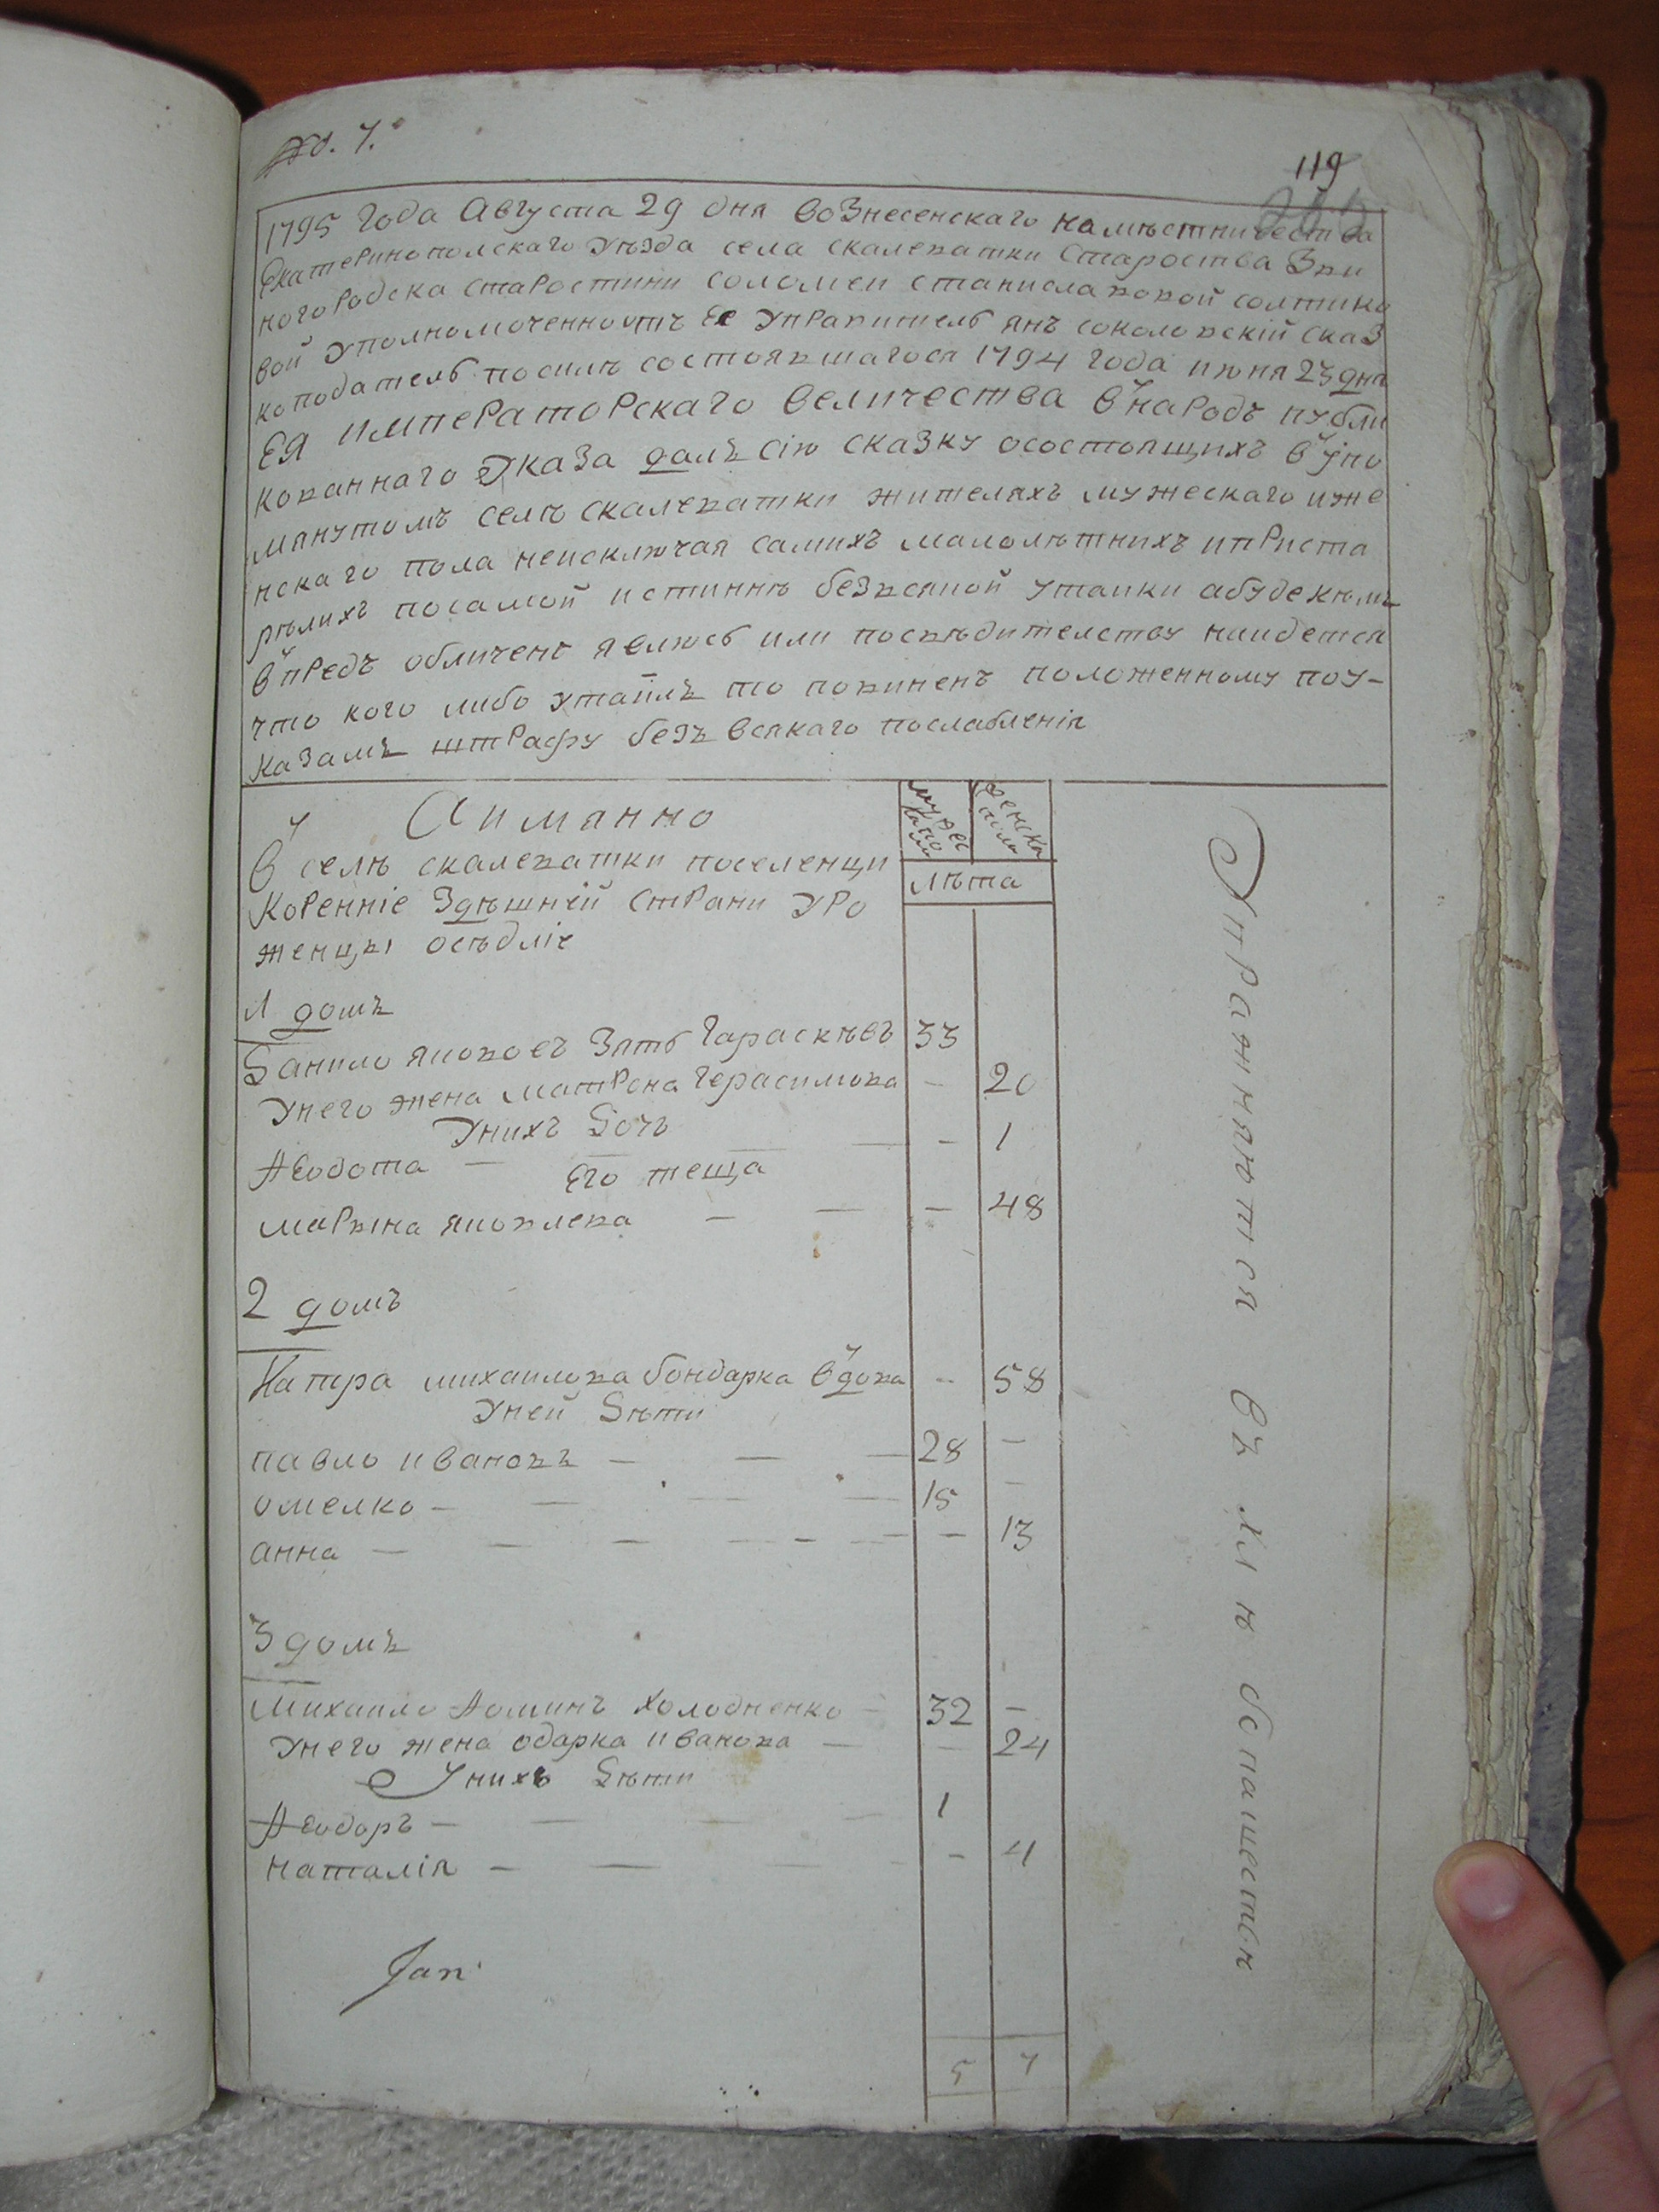 №. 7.
119
1795 года Августа 29 дня вознесенскаго намѣстничества
Екатеринополскаго уѣзда села скалеватки староства Зви
ногородска старостини соломеи станиславовой солтико
вой уполномоченностъ Ее управитель янъ соколовскій сказ
коподатель посилѣ состоявшагося 1794 года июня 23 дня
ЕЯ императорскаго величества въ народъ публи
кованнаго указа далъ сію сказку осостоящихъ въ упо
мянутомъ селѣ скалеватки жителяхъ мужескаго иже
нскаго пола неисключая самихъ малолѣтнихъ ипреста
рѣлихъ посамой истиннѣ безвсякой утаики абуде кѣмъ
въпредъ обличенъ явлюсь или посвѣдителству наидется
что кого либо утаилъ то повиненъ положенному поу-
казамъ штрафу безъ всякаго послабленія
Аимянно
въ селѣ скалеватки поселенци
Коренніе Здѣшней страни уро
женцы осѣдліе
мужес
ка по
ла
женска
пола
лѣта
1 домъ
Данило яковъ Зять Гараскѣвъ 33
Унего жена матрона Герасимова - 20
Унихъ Дочь
Ѳеодота - - - 1
Его теща
марвина яковлева - - - 48
2 домъ
Катра михаилова бондарка въдова - 58
Уней Дѣти
павло ивановъ - - - 28 -
омелко - - - - 15 -
анна - - - - - - - 13
3 домъ
Михаило Ѳоминъ Холодненко - 32 -
Унего жена одарка иванова - - 24
Унихъ Дѣти
Ѳеодоръ - - - - 1
наталія - - - - - 4
Jan
5 7
Упражняются въ хлѣбопашествѣ